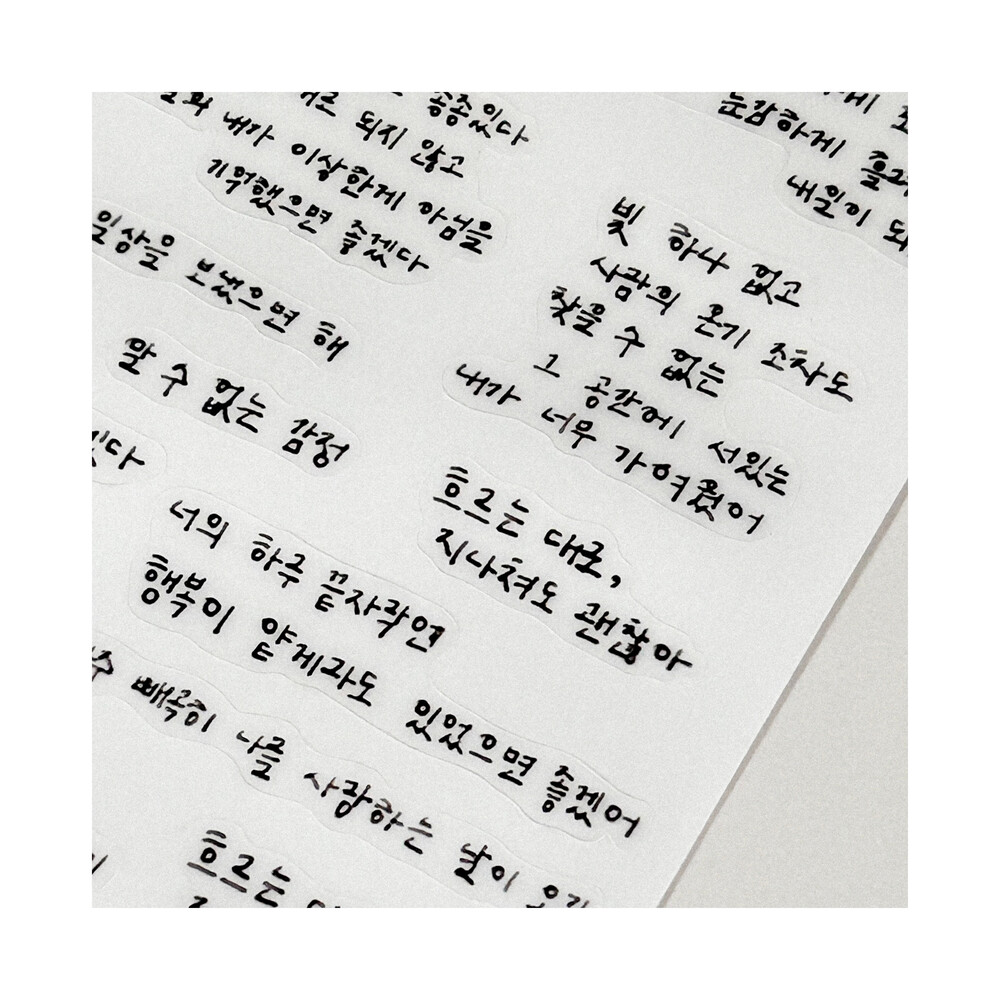 종종있다
되지 않고
내가 이상한게 아님을
기억했으면 좋겠다
일상을 보냈으면 해
알 수 없는 감정
있다
너의 하루 끝자락엔
행복이 얕게라도 있었으면 좋겠어
빼곡히 나를 사랑하는 날이
흐르는
둔감하게
내일이
빛 하나 없고
사람의 온기 조차도
찾을 수 없는
그 공간에 서있는
내가 너무 가여웠어
흐르는 대로,
지나쳐도 괜찮아